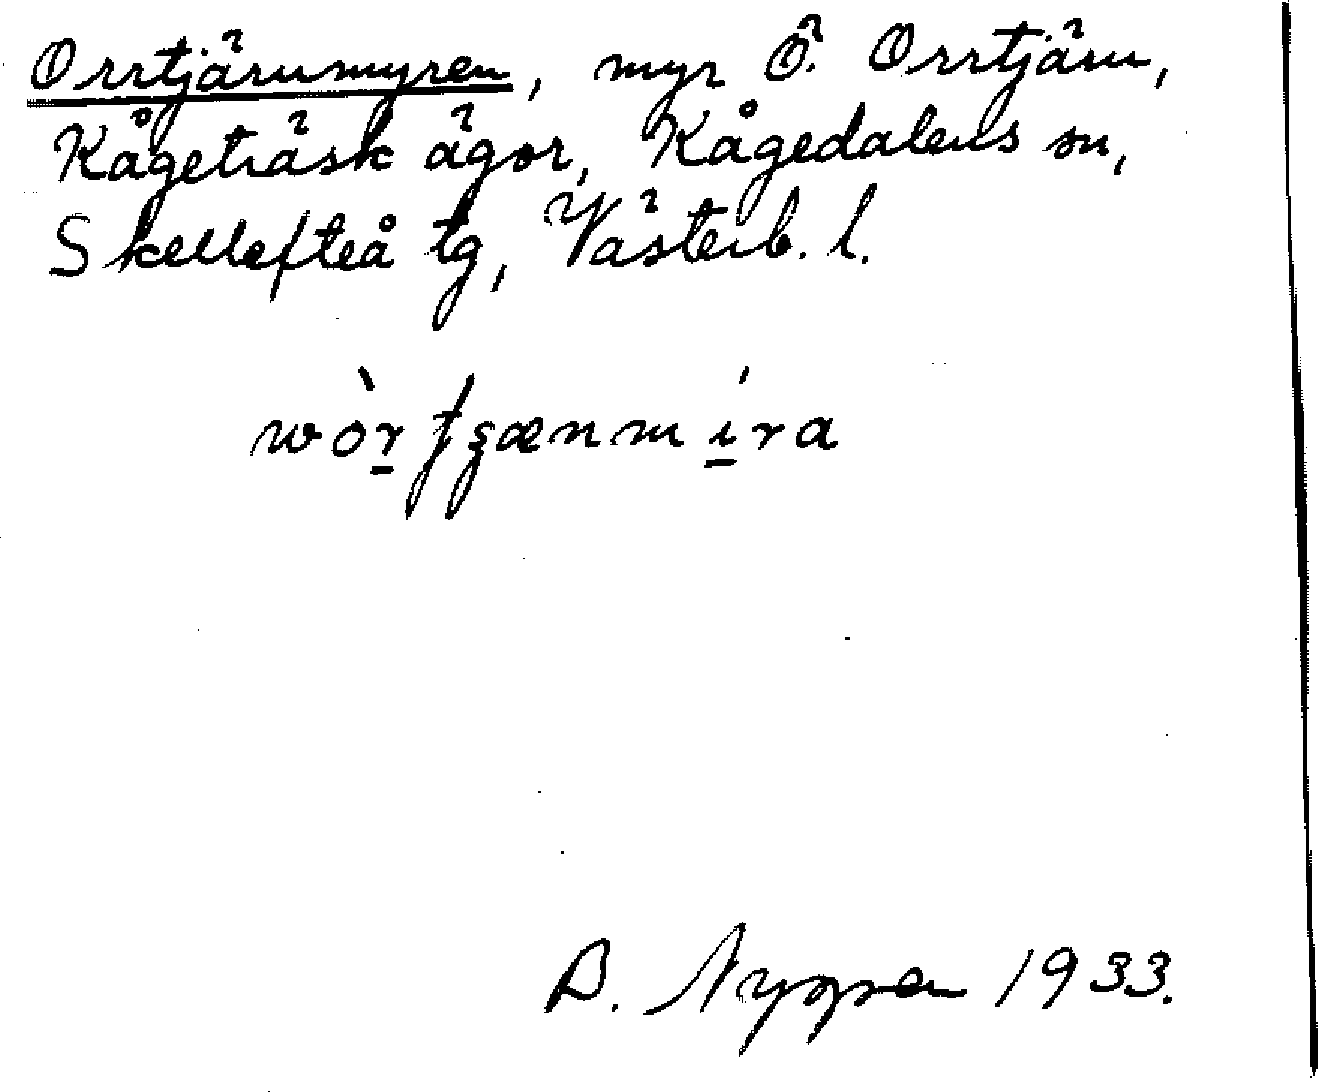 Orrtjärnmyren, myr Ö. Orrtjärn,
Kågeträsk ägor, Kågedalens sn,
Skellefteå tg, Västerb. l.
B. Nygren 1933.